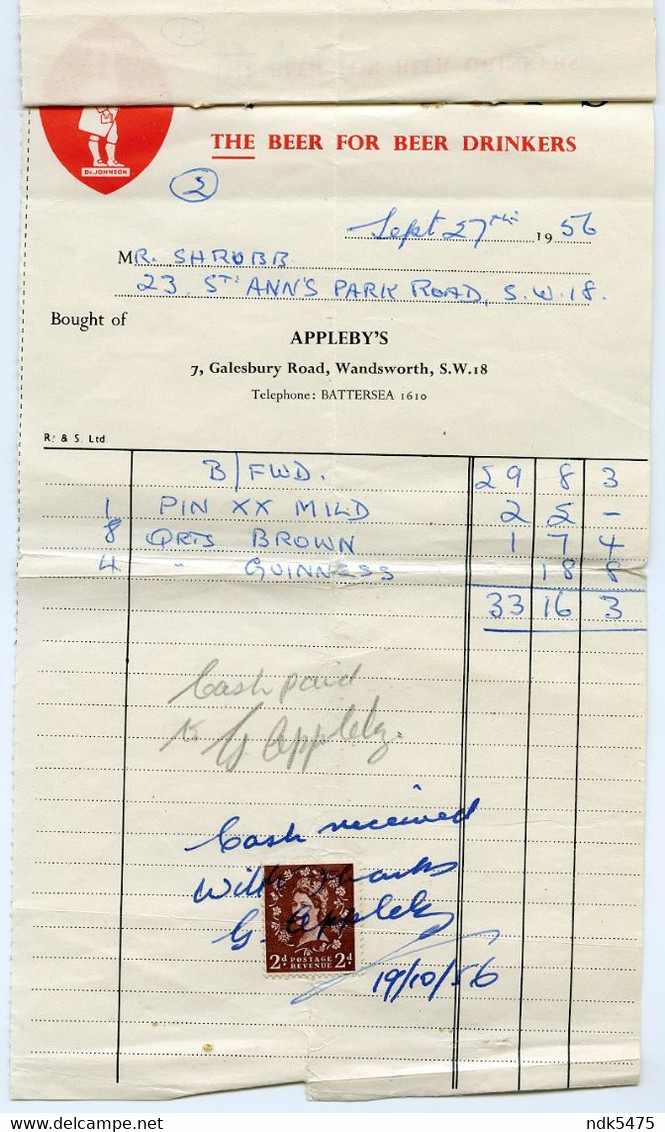 THE BEER FOR BEER DRINKERS
Dr. JOHNSON
2
Sept 27th 1956
MR. SHRUBB
23 ST ANN'S PARK ROAD, S.W.18.
Bought of
APPLEBY'S
7, Galesbury Road, Wandsworth, S.W.18
Telephone: BATTERSEA 1610
R. & S. Ltd
B/FWD. 29 8 3
1 PIN XX MILD 2 2 -
8 QRTS BROWN 1 7 4
4 " GUINNESS 18 8
33 16 3
Cash paid
G Appleby.
Cash received
With thanks
G. Appleby
2d POSTAGE REVENUE 2d
19/10/56
ndk5475